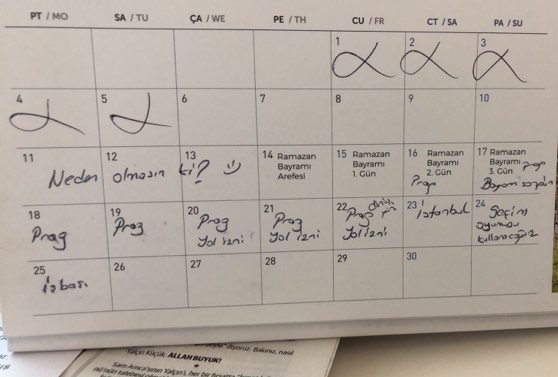 PT / MO SA / TU ÇA / WE PE / TH CU / FR CT / SA PA / SU
1 2 3
4 5 6 7 8 9 10
11 12 13 14 Ramazan Bayramı Arefesi 15 Ramazan Bayramı 1. Gün 16 Ramazan Bayramı 2. Gün 17 Ramazan Bayramı 3. Gün
Neden olmasın ki?
Prag Prag
18 19 20 21 22 23 24
Prag Prag Prag Yol izni Prag Yol izni Prag Yol izni İstanbul Seçim oyumu kullanacağız
25 26 27 28 29 30
İşbaşı
diyoruz. Bakınız, nasıl
Yalçın Küçük; ALLAH BUYUK!